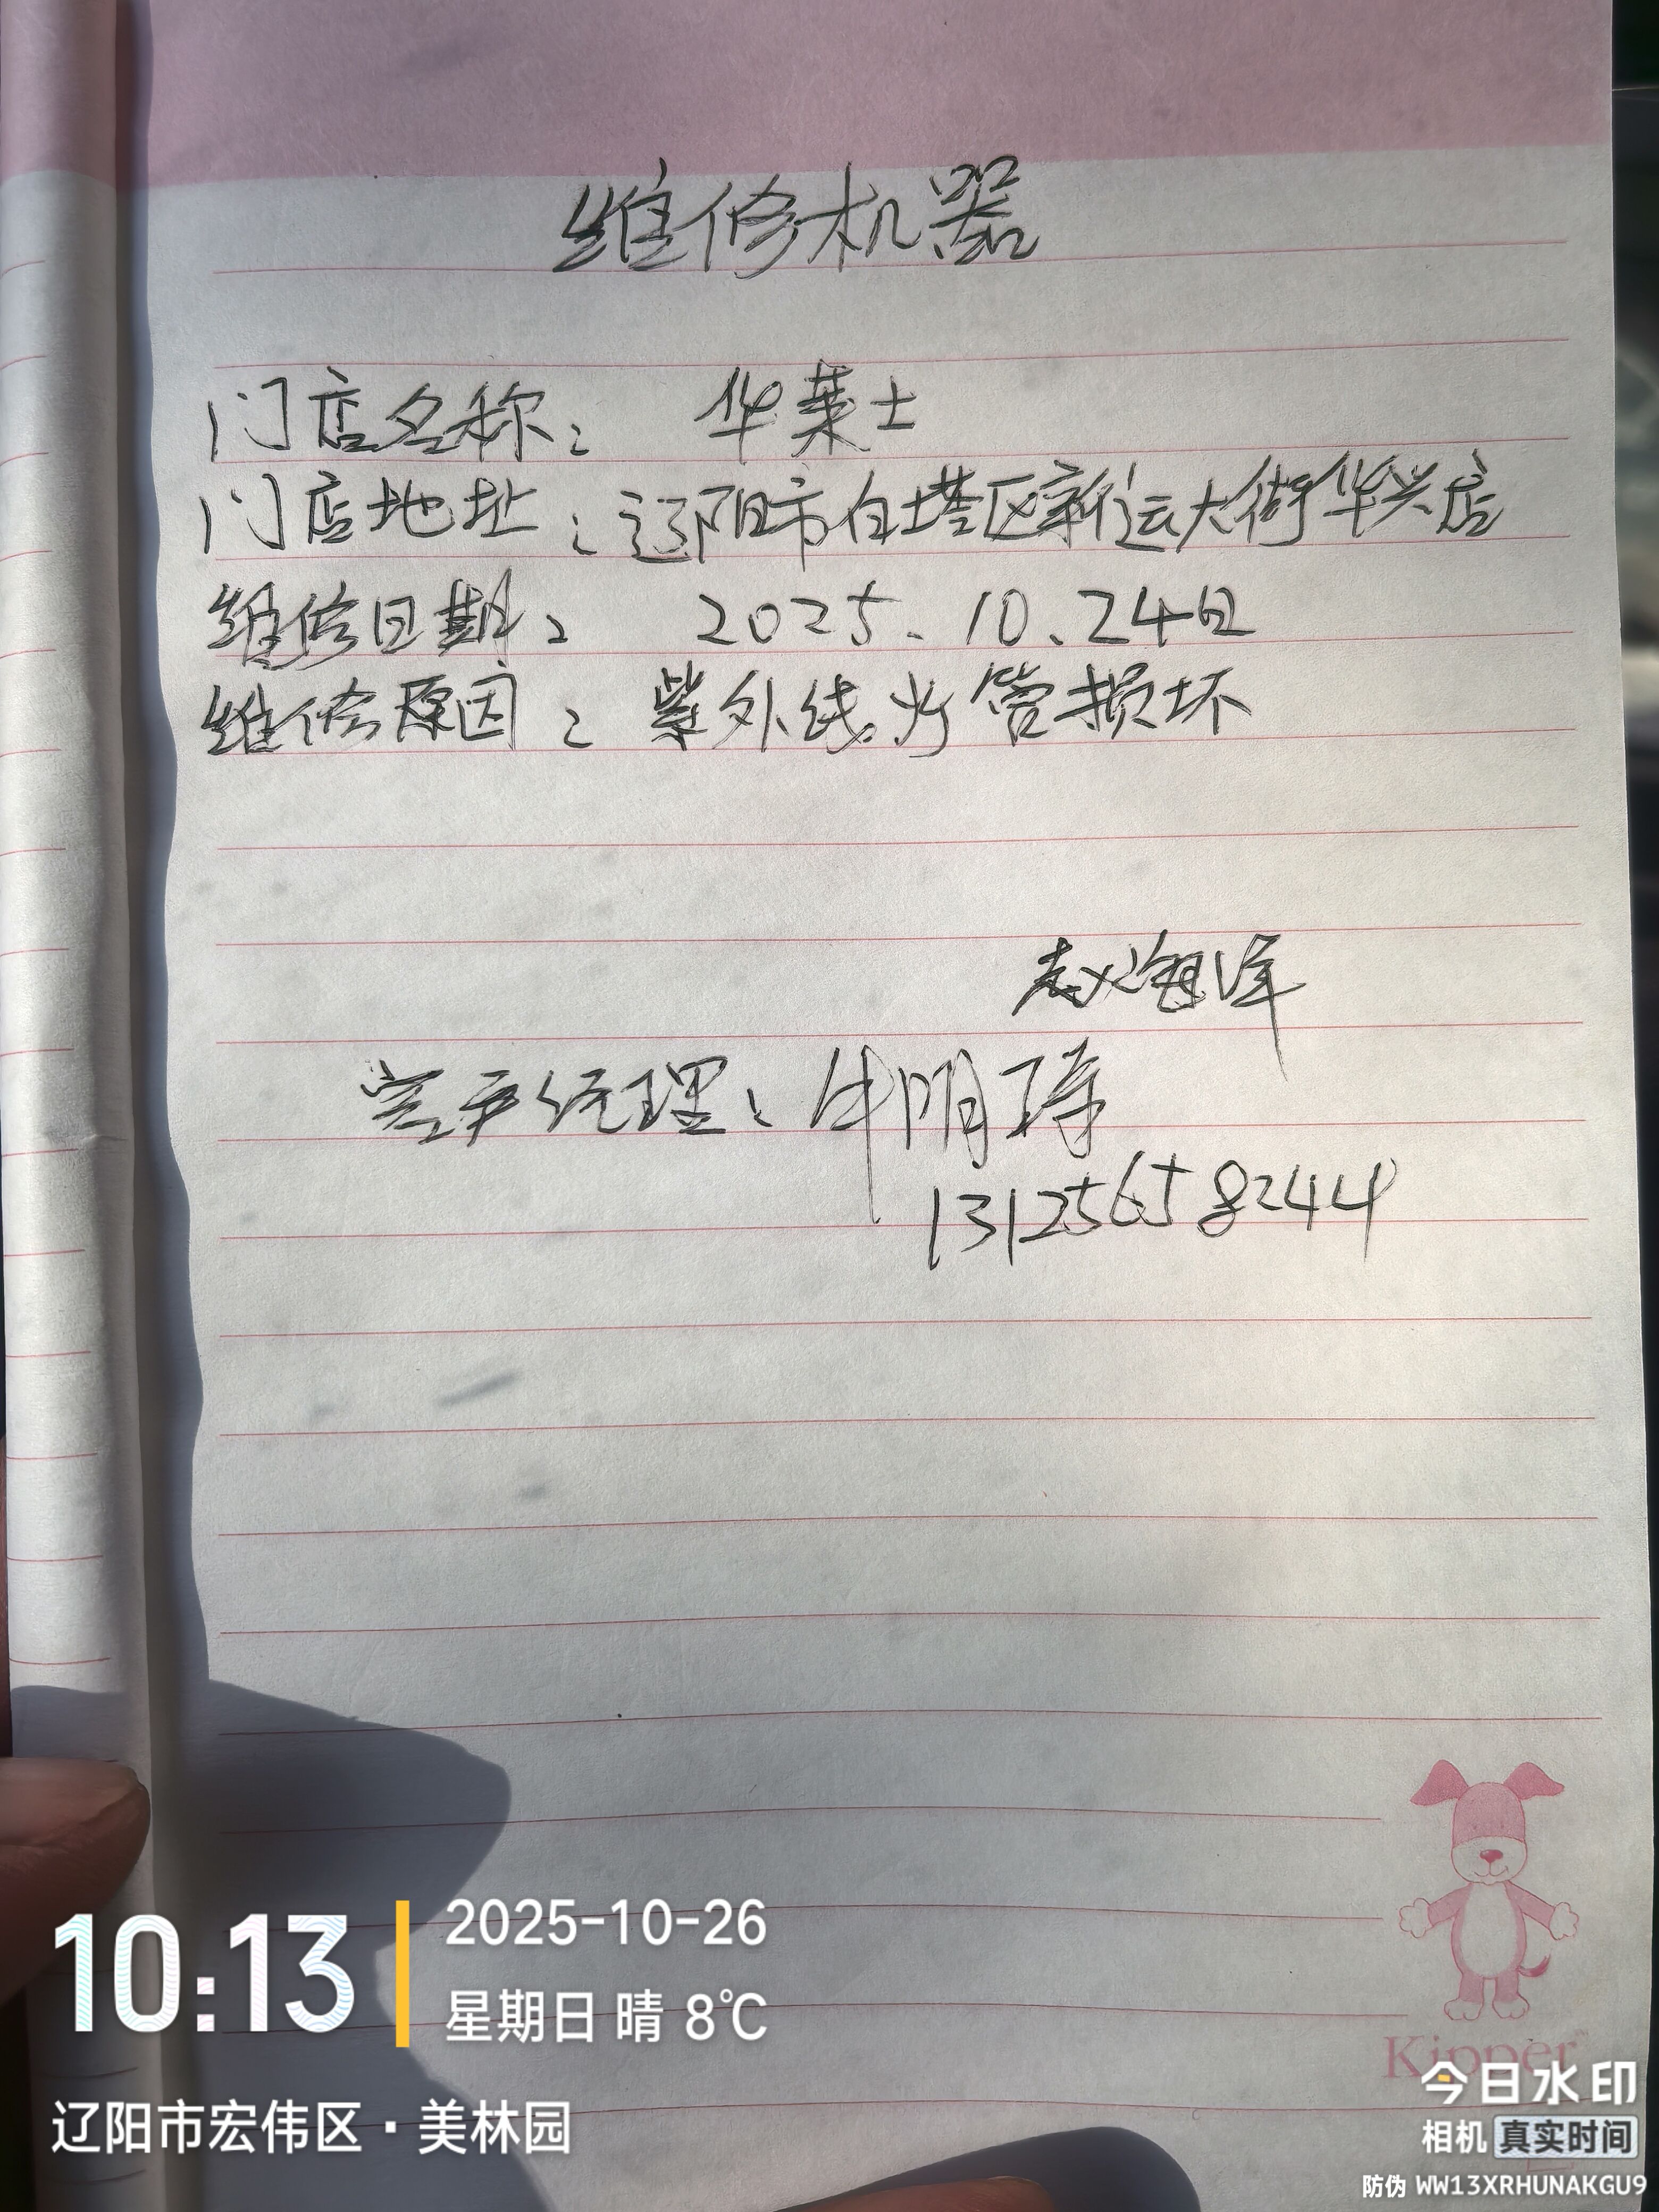 维修机器
门店名称: 华莱士
门店地址:辽阳市白塔区新运大街华兴店
维修日期: 2025.10.24日
维修原因: 紫外线灯管损坏
赵海洋
室平经理:牛明琦
13125658244
Kipper
10:13
2025-10-26
星期日 晴 8℃
辽阳市宏伟区·美林园
今日水印
相机 真实时间
防伪 WW13XRHUNAKGU9